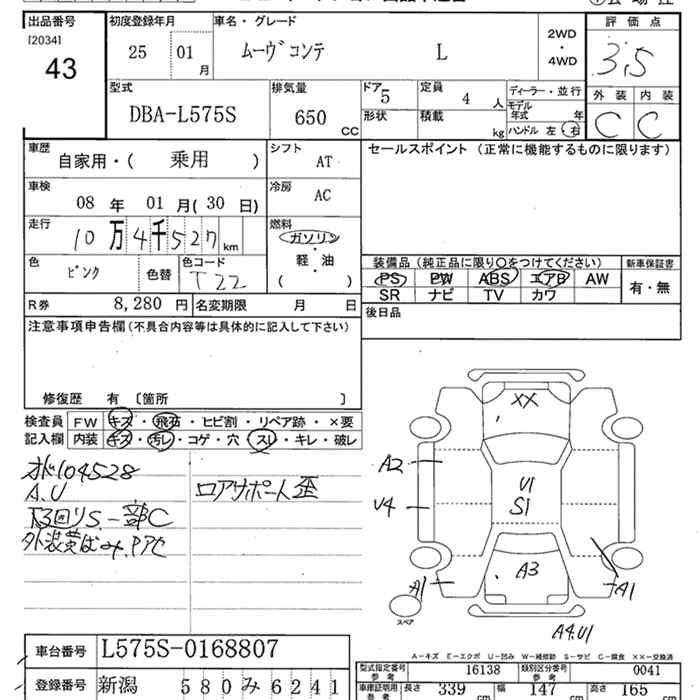 出品番号 初度登録年月 車名・グレード 評価点
[2034] 43 25 01月 ムーヴコンテ L 2WD・4WD 3.5
型式 排気量 ドア 定員 ディーラー・並行 外装 内装
DBA-L575S 650cc 5 4人 モデル年式 年 C C
形状 積載 kg ハンドル 左・右
車歴 シフト セールスポイント (正常に機能するものに限ります)
自家用・( 乗用 ) AT
車検 冷房
08年 01月(30日) AC
走行 燃料
10万4千527km ガソリン
軽・油
( )
色 色替 色コード 装備品 (純正品に限り○をつけてください) 新車保証書
ピンク T22 PS PW ABS エアB AW 有・無
SR ナビ TV カワ
R券 8,280円 名変期限 月 日 後日品
注意事項申告欄 (不具合内容等は具体的に記入して下さい)
修復歴 有 〔箇所 〕
検査員 FW キズ・飛石・ヒビ割・リペア跡・×要
記入欄 内装 キズ・汚レ・コゲ・穴・スレ・キレ・破レ
104528
A.U ロアサポート歪
下回りS 一部C
外装黄ばみ、
XX
A2
U1
U4
S1
A3
A1 A1
スペア
A4.U1
A-キズ E-エクボ U-凹み W-補修跡 S-サビ C-腐食 XX-交換済
車台番号 L575S-0168807
型式指定番号 参考 16138 類別区分番号 参考 0041
登録番号 新潟 580 み 6241
車庫証明用 参考 長さ 339cm 幅 147cm 高さ 165cm